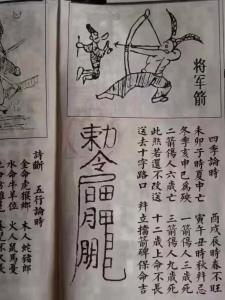 将车箭
四季論時
酉戌辰時春不旺
未卯子時夏中亡 寅午丑時秋並忌
冬季亥申巳為殃 一箭傷人三歲死
二箭傷人六歲亡 三箭傷人九歲死
此煞若還不改送 十二歲上命不長
送去十字路口 立擋箭碑保命吉
勅令
詩斷 五行論時
金命虎猴鄉 木人蛇豬郎
水命牛羊位 火人鼠馬憂